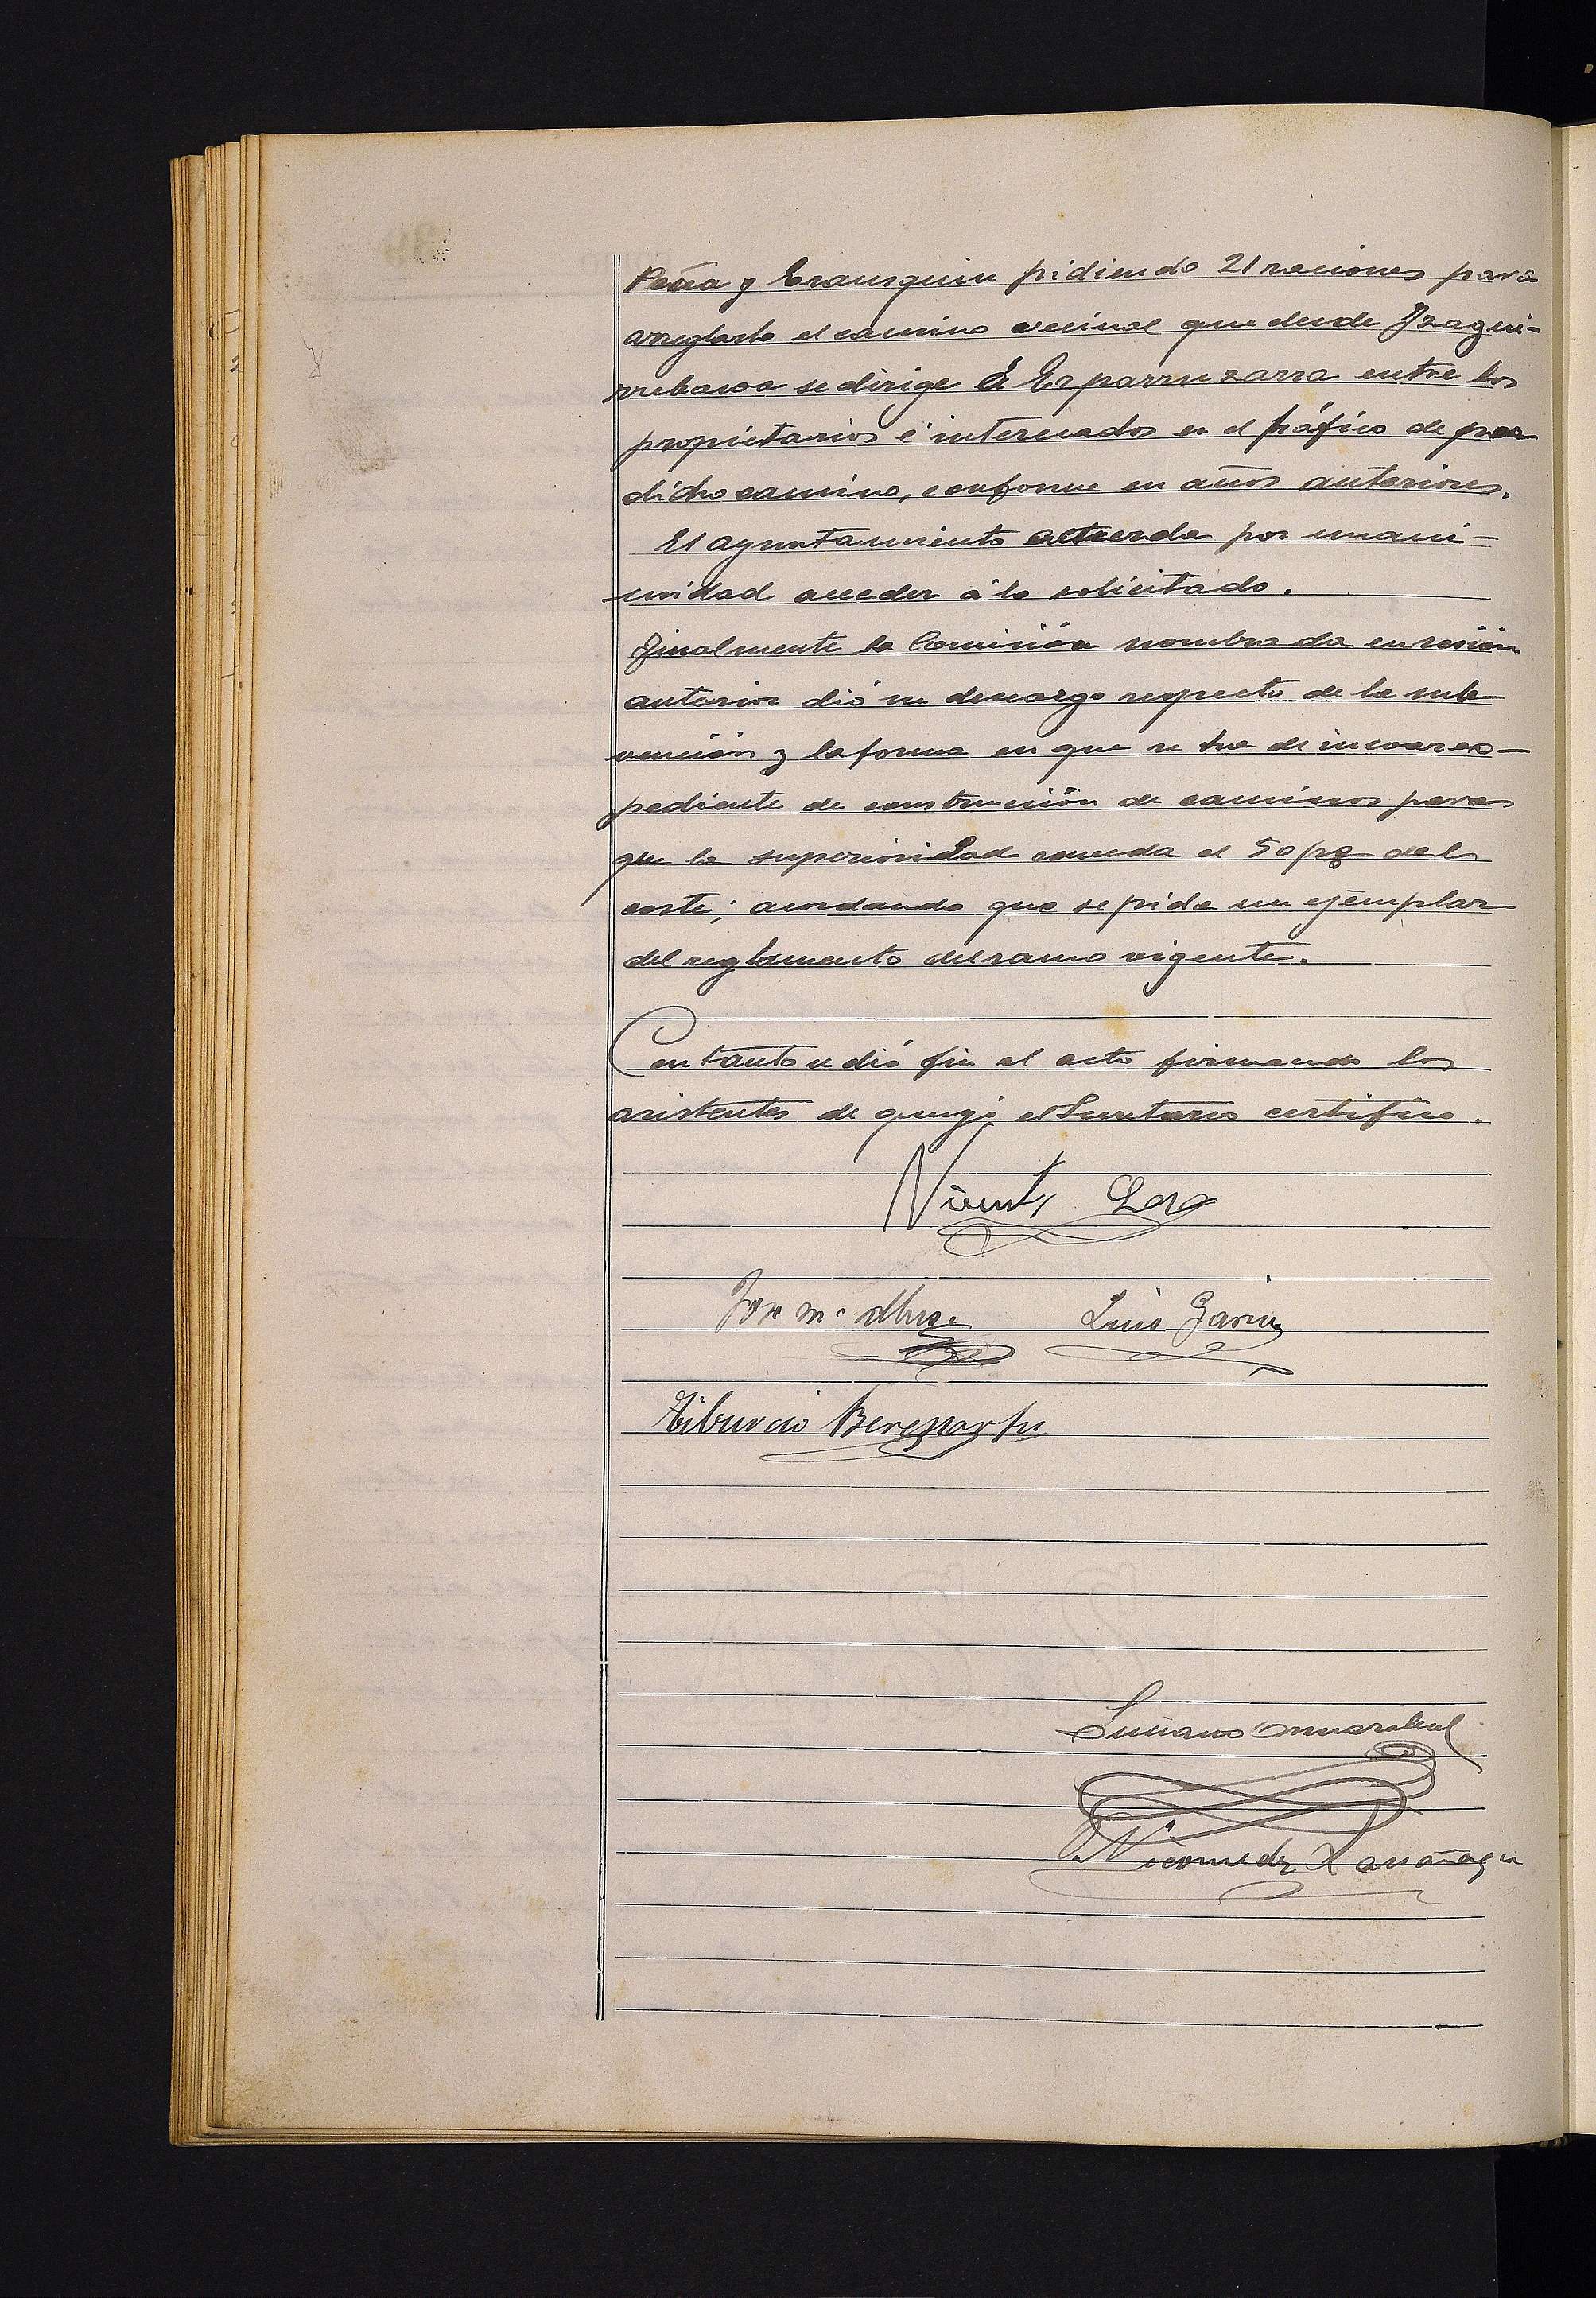 Peña y Eransquin pidiendo 21 raciones para
arreglarlo el camino vecinal que desde Yzagui-
rrebasoa se dirige á Esparruzarra entre los
propietarios é interesados en el tráfico de por
dicho camino, conforme en años anteriores.
El ayuntamiento acuerda por unani-
midad acceder á lo solicitado.
Finalmente la Comisión nombrada en sesión
anterior dió su descargo respecto de la sub
vención y la forma en que se ha de incoar ex-
pediente de construcción de caminos para
que la superioridad conceda el 50 p% del
coste; acordando que se pida un ejemplar
del reglamento del ramo vigente.
Con tanto se dió fin al acto firmando los
asistentes de que yó el Secretario certifico.
Vicente Lasa
Jose Mª Luis Garin
Tiburcio Berepartu
Luciano Ormazabal
Nicomedes Larrañaga